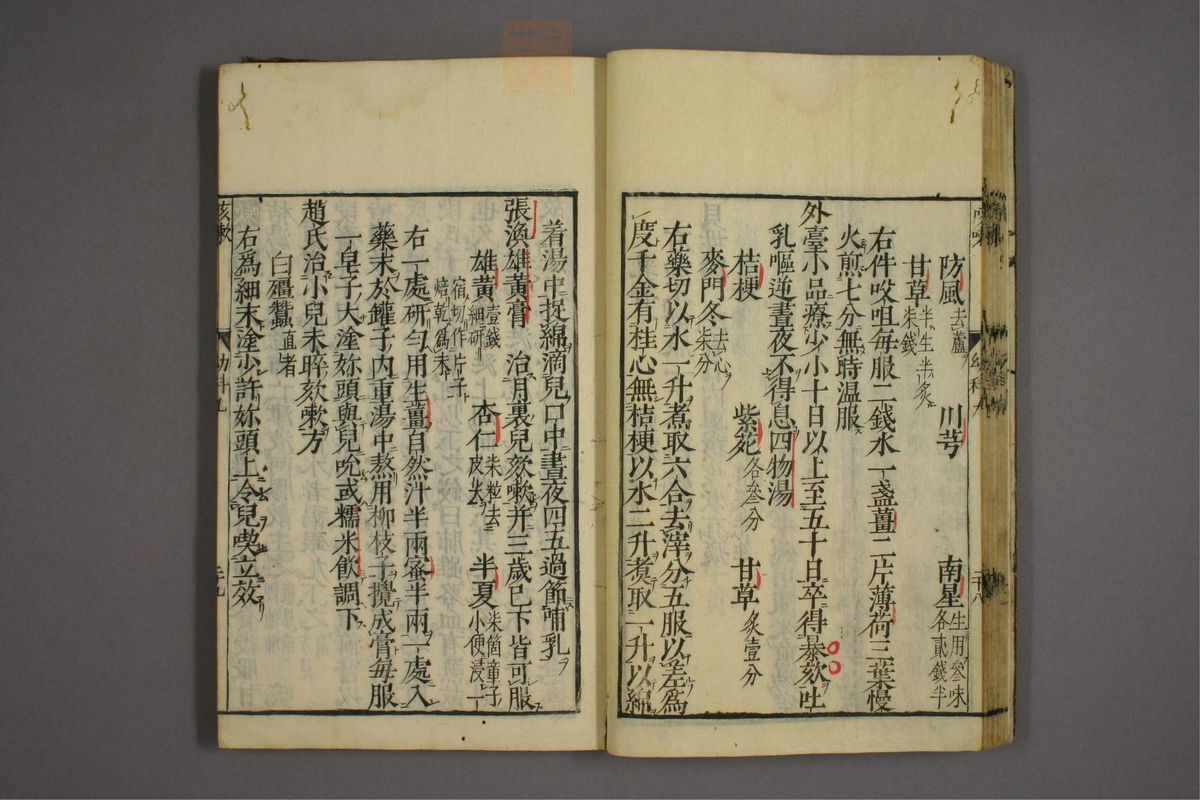 防風去蘆　川芎　南星生用叄味各貳錢半
甘草半生半炙柒錢
右件㕮咀每服二錢水一盞薑二片薄荷三葉慢
火煎七分無時溫服
外臺小品療少小十日以上至五十日卒得暴欬吐
乳嘔逆晝夜不得息四物湯
桔梗　紫菀各叄分　甘草炙壹分
麥門冬去心柒分
右藥切以水一升煮取六合去滓分五服以差為
度千金有桂心無桔梗以水二升煮取一升以綿
著湯中捉綿滴兒口中晝夜四五過節哺乳
張渙雄黃膏　治月裏兒欬嗽并三歲已下皆可服
雄黃壹錢細研　杏仁柒粒去皮尖　半夏柒箇童子小便浸一
宿切作片子焙乾為末
右一處研勻用生薑自然汁半兩蜜半兩一處入
藥末於鑵子內重湯中熬用柳枝子攪成膏每服
一皂子大塗妳頭與兒吮或糯米飲調下
趙氏治小兒未晬欬嗽方
白殭蠶直者
右為細末塗少許妳頭上令兒喫立效
幼科九
二九